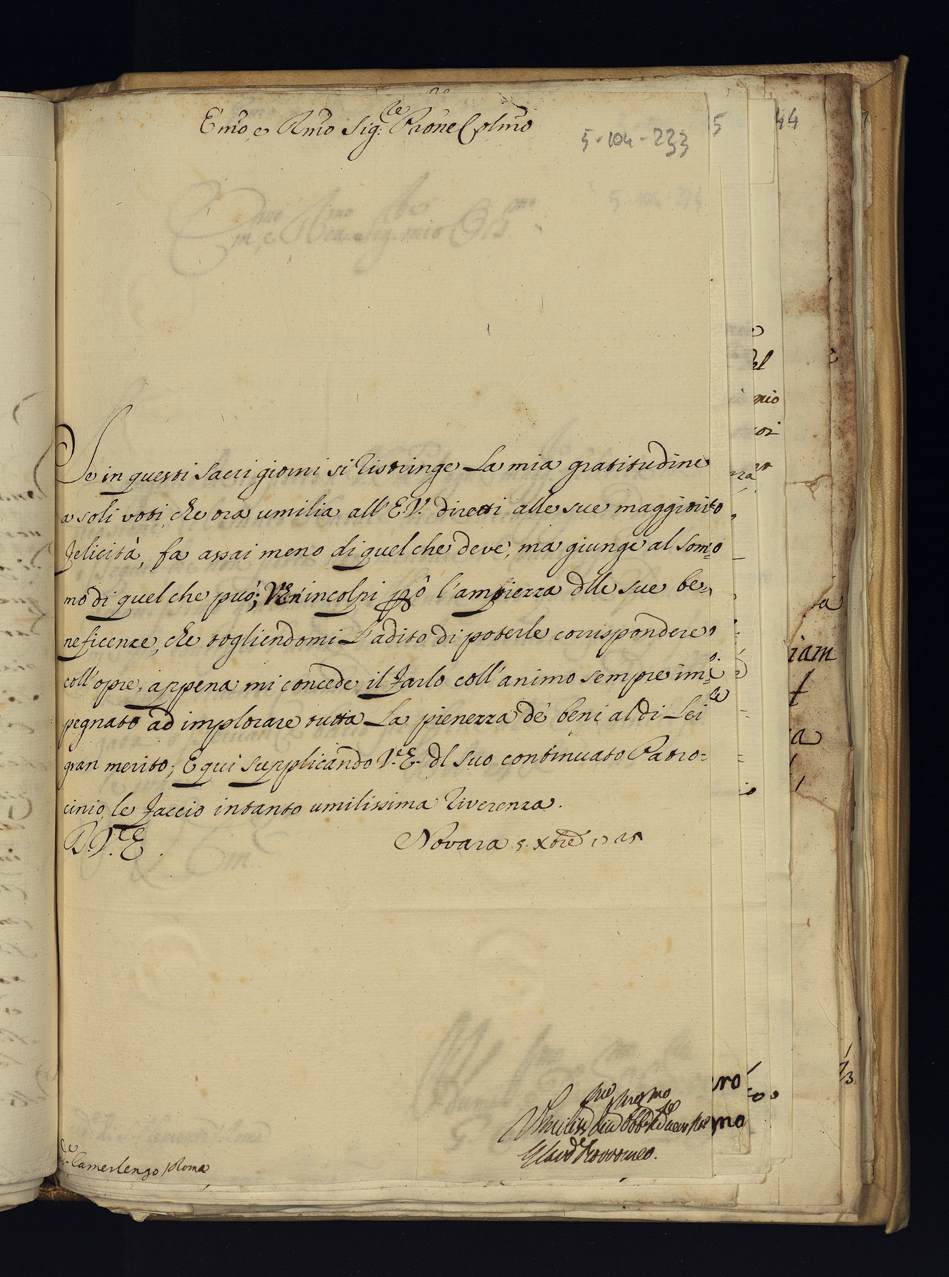 Emo e Rmo Sig.re Prone Colmo
5-104-233
Se in questi sacri giorni si ristringe la mia gratitudine
a soli voti, che ora umilia all'E.V. diretti alle sue maggiori
felicità, fa assai meno di quel che deve, ma giunge al som=
mo di quel che può; Ne incolpi però l'ampiezza dlle sue be=
neficenze, che togliendomi l'adito di poterle corrispondere
coll'opre, appena mi concede il farlo coll'animo sempre im=
pegnato ad implorare tutta la pienezza de beni al di Lei
gran merito; E qui supplicando V.E. dl suo continuato Patro=
cinio, le faccio intanto umilissima riverenza.
D. V.E.
Novara 5 Xbre 1725
Camerlengo Roma